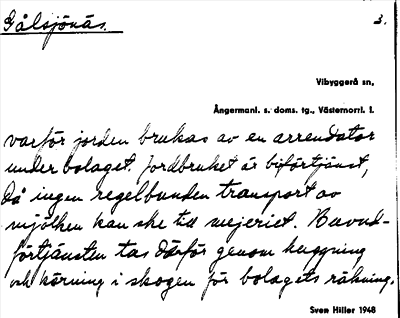 Gålsjönäs. 3.
Vibyggerå sn,
Ångermanl. s. doms. tg., Västernorrl. l.
varför jorden brukas av en arrendator
under bolaget. Jordbruket är biförtjänst,
då ingen regelbunden transport av
mjölken kan ske till mejeriet. Huvud-
förtjänsten tas därför genom huggning
och körning i skogen för bolagets räkning.
Sven Hiller 1948